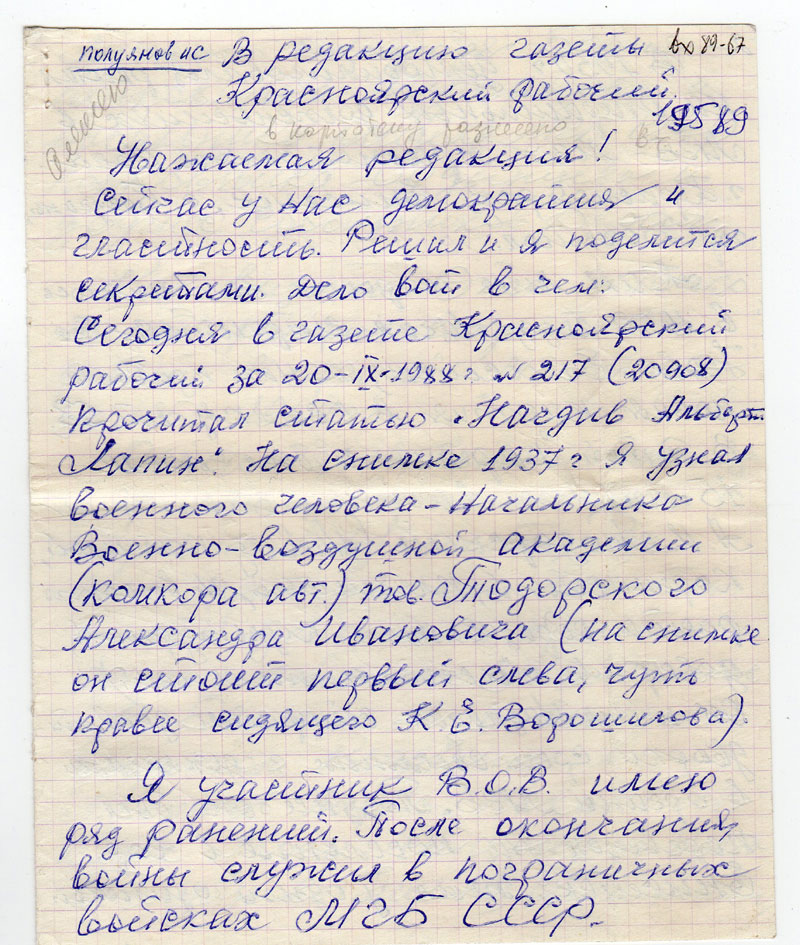 полуянов ис В редакцию газеты вх 89-67
Красноярский рабочий.
19589
в картотеку разнесено
Уважаемая редакция!
Сейчас у нас демократия и
гластность. Решил и я поделится
секретами. Дело вот в чем:
Сегодня в газете Красноярский
рабочий за 20-IX-1988г № 217 (20908)
прочитал статью "Начдив Альберт
Лапин". На снимке 1937г я узнал
военного человека - Начальника
Военно-воздушной академии
(комкора авт.) тов. Тодорского
Александра Ивановича (на снимке
он стоит первый слева, чуть
правее сидящего К.Е. Ворошилова).
Я участник В.О.В. имею
ряд ранений. После окончания
войны служил в пограничных
войсках МГБ СССР.